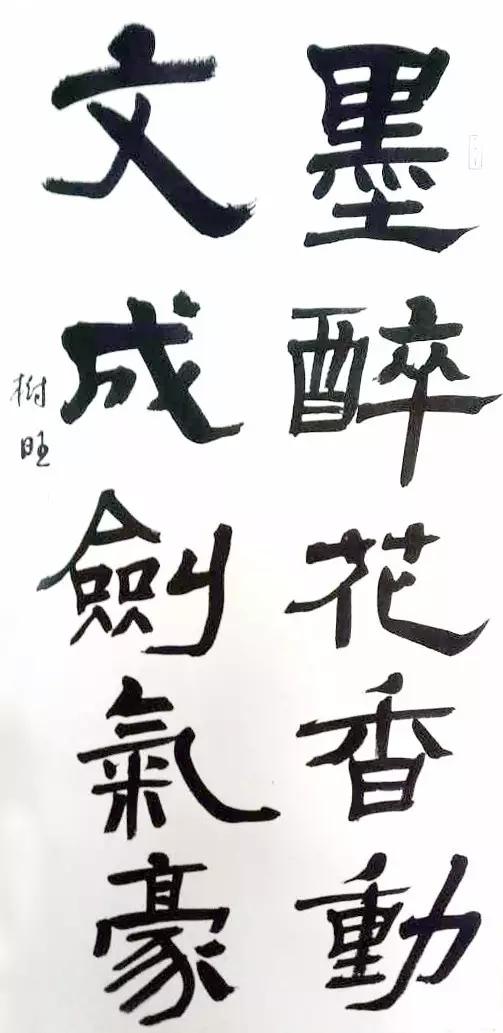 墨醉花香動
文成劍氣豪
樹旺